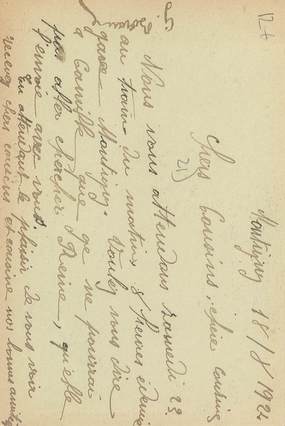 12 t
Montigny 18/8 1922
Chers Cousins, chère cousine
21)
Nous vous attendons samedi 23
au train du matin, 8 heures et demie
gare Montigny. Voulez vous dire
à Camille que je ne pourrai
pas aller chercher Reine, qu'elle
vienne avec vous.
En attendant le plaisir de vous voir
recevez chers cousins et cousine nos bonnes amitiés
G.